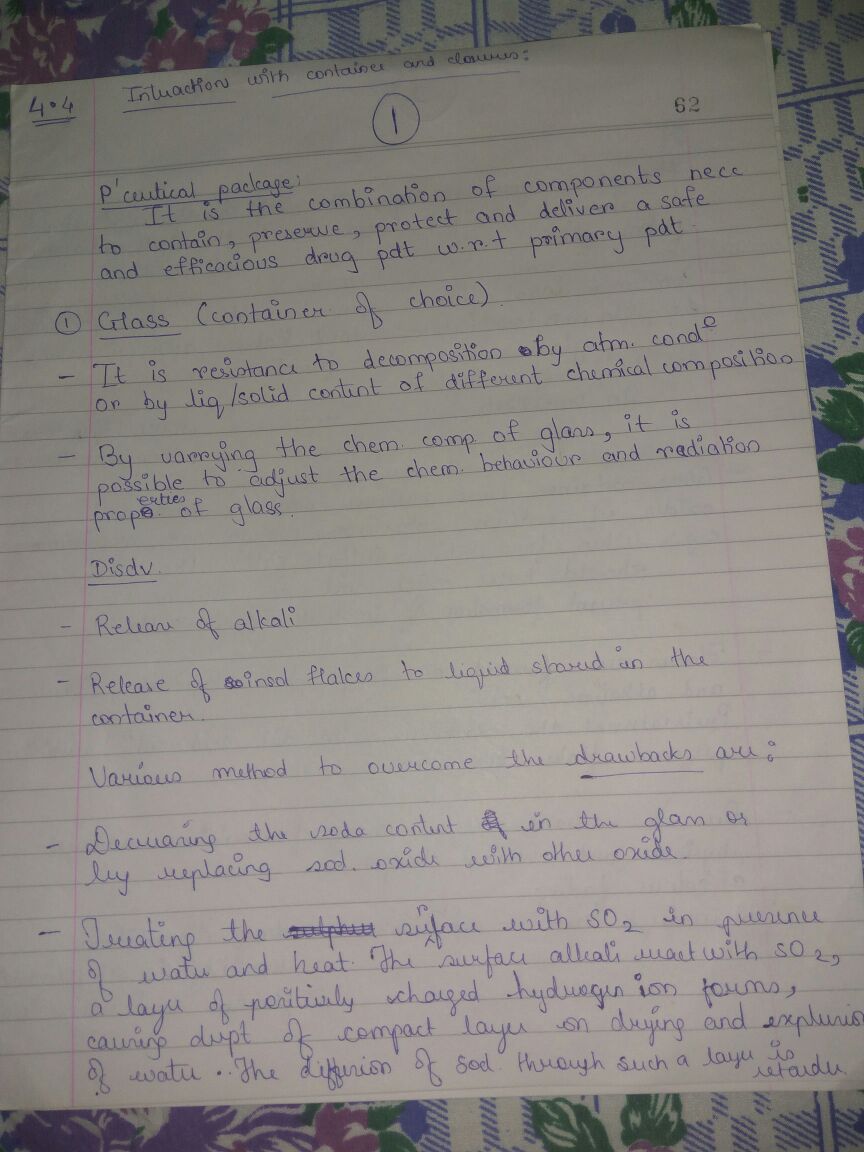 4.4 Interaction with container and closures:
1
62
P'ceutical package:
It is the combination of components nece
to contain, preserve, protect and deliver a safe
and efficacious drug pdt w.r.t primary pdt.
① Glass (container of choice).
- It is resistance to decomposition by atm. condn
or by liq/solid content of different chemical composition
- By varrying the chem. comp. of glass, it is
possible to adjust the chem. behaviour and radiation
properties of glass.
Disdv.
- Release of alkali
- Release of insol flakes to liquid stored in the
container.
Various method to overcome the drawbacks are:
- Decreasing the soda content in the glass or
by replacing sod. oxide with other oxide.
- Treating the surface with SO2 in presence
of water and heat. The surface alkali react with SO2,
a layer of positively charged hydrogen ion forms,
causing dvpt of compact layer on drying and explusion
of water. The diffusion of sod. through such a layer is
retardu